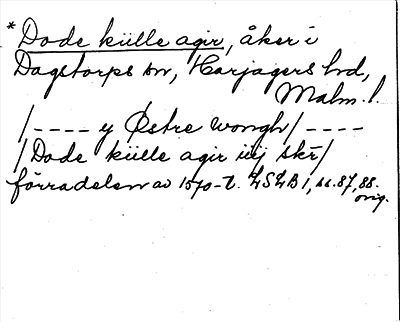 *Dode külle agir, åker i
Dagstorps sn, Harjagers hd,
Malm. l.
/---- y Østre wongh/----
/Dode külle agir iiij skr/
förradelsen av 1570-t. LSLB 1, ss. 87, 88.
orig.